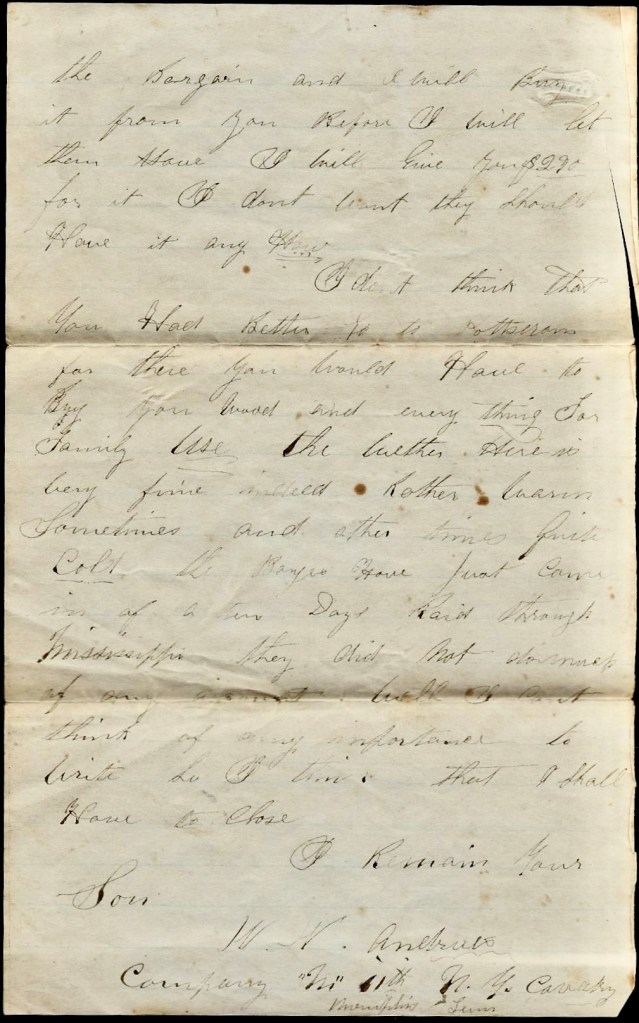 the Bargain and I will Buy
it from you Before I will let
them Have I will Give you $290
for it I dont want they should
Have it any How
I dont think that
You Had Better go to
for there you would Have to
Buy you wood and every thing For
Family Use the wether Here is
very fine indeed Rother Warm
Sometimes and other times Quite
Cold the Boyes Have Just Came
in of a ten Days Raid through
Mississippi they did Not
of any I dont
think of any importance to
Write So I think that I Shall
Have to Close
I Remain Your
Son
W. N. Andrews
Company "M" 11th N. Y. Cavalry
Memphis Tenn